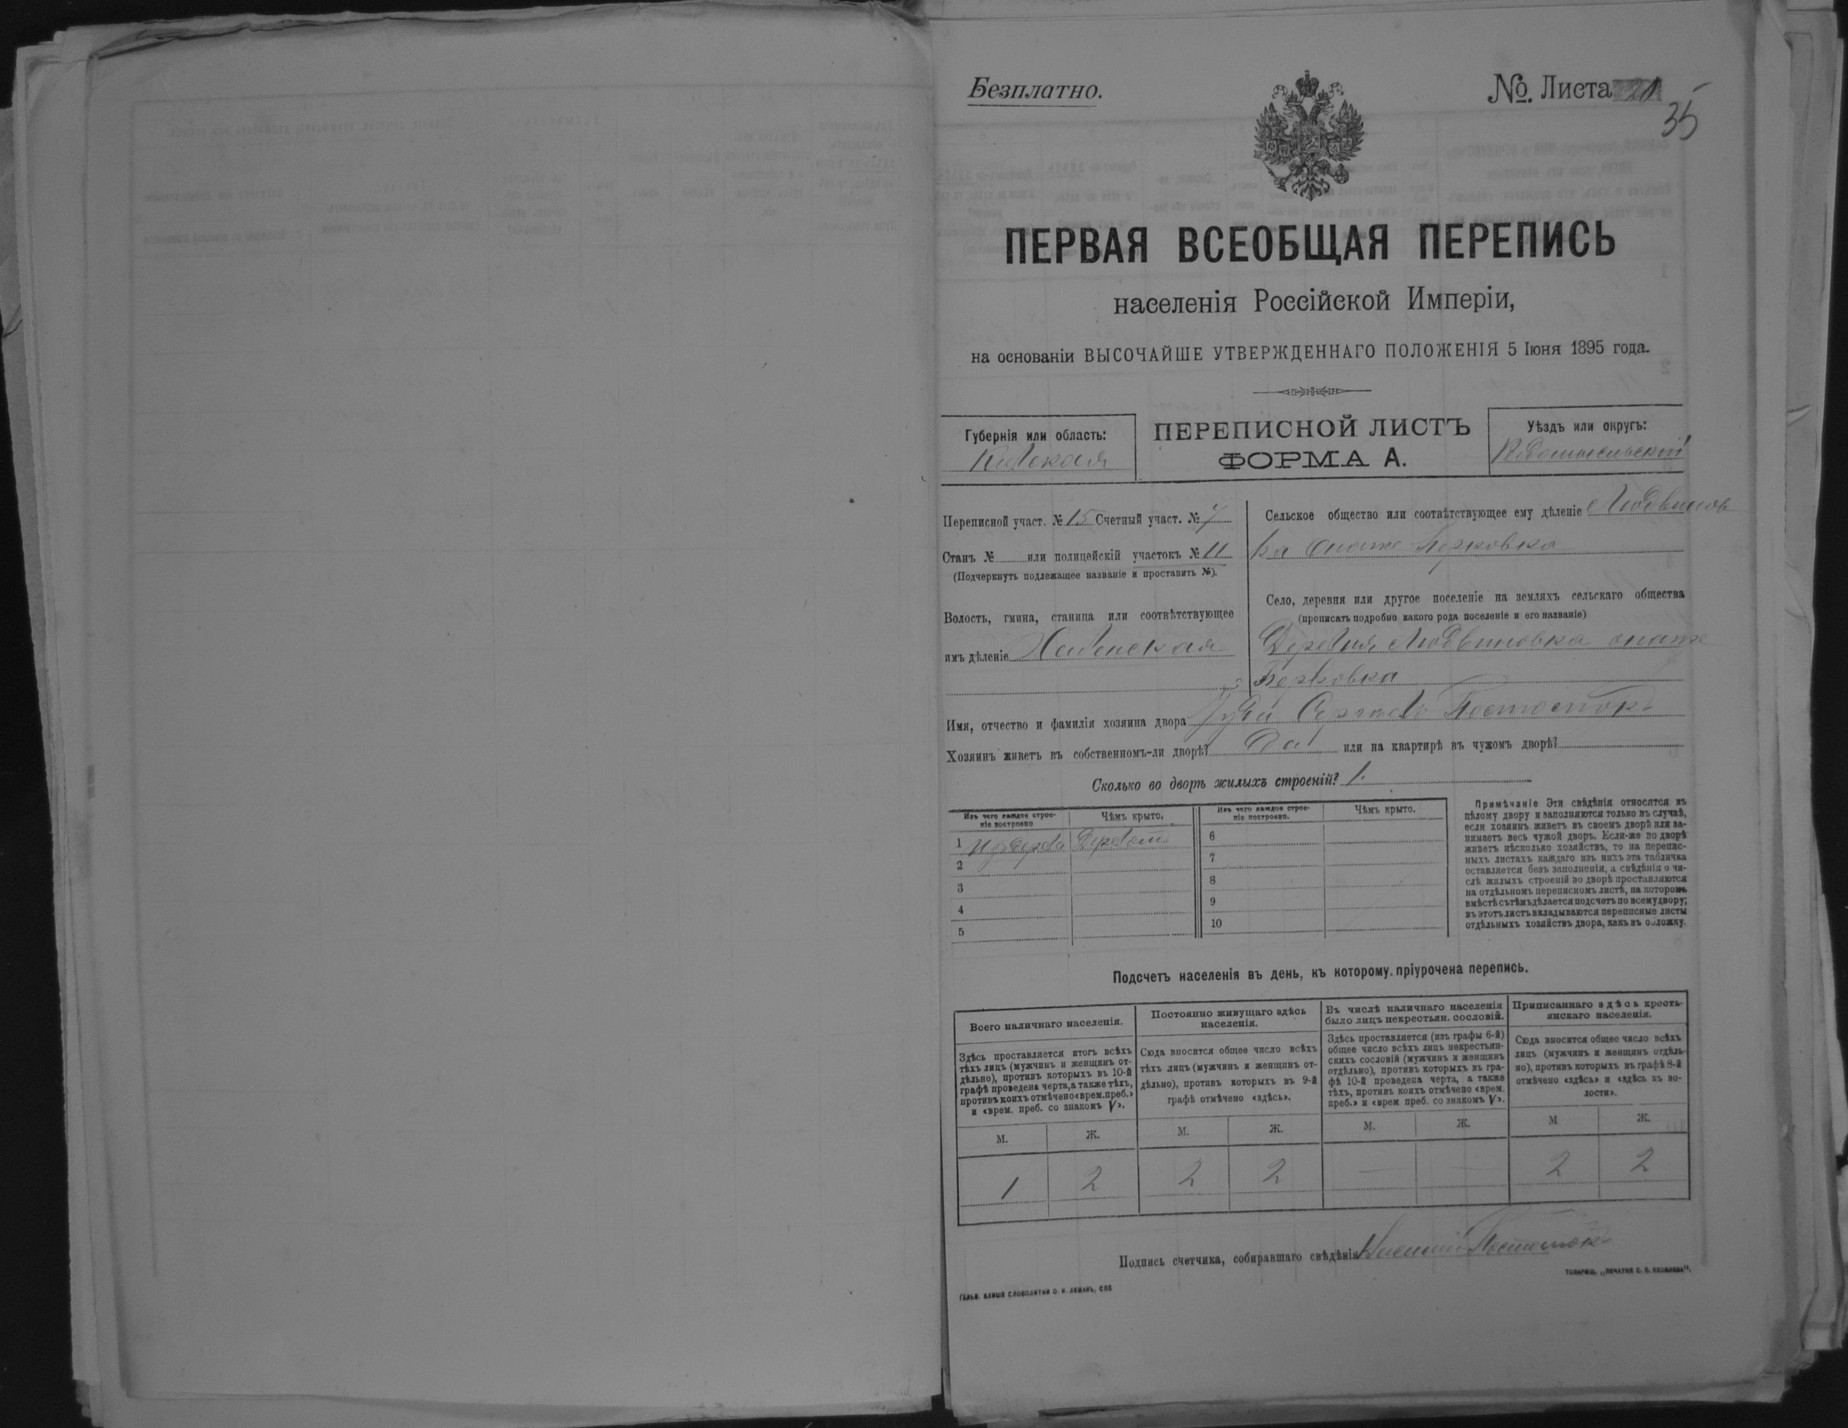 Безплатно.
№ Листа
35
ПЕРВАЯ ВСЕОБЩАЯ ПЕРЕПИСЬ
населенія Россійской Имперіи,
на основаніи ВЫСОЧАЙШЕ УТВЕРЖДЕННАГО ПОЛОЖЕНІЯ 5 Іюня 1895 года.
Губернія или область:
Кіевская
ПЕРЕПИСНОЙ ЛИСТЪ
ФОРМА А.
Уѣздъ или округъ:
Радомысльскій
Переписной участ. № 15 Счетный участ. № 7
Станъ № или полицейскій участокъ № II
(Подчеркнуть подлежащее названіе и проставить №).
Волость, гмина, станица или соотвѣтствующее
имъ дѣленіе Хабенская
Сельское общество или соотвѣтствующее ему дѣленіе Людвинов
ка
Село, деревня или другое поселеніе на земляхъ сельскаго общества
(прописать подробно какого рода поселеніе и его названіе)
Деревня Людвиновка
Берковка
Имя, отчество и фамилія хозяина двора
Хозяинъ живетъ въ собственномъ-ли дворѣ? Да или на квартирѣ въ чужомъ дворѣ?
Сколько во дворѣ жилыхъ строеній? 1.
Изъ чего каждое строе-
ніе построено
Чѣмъ крыто.
Изъ чего каждое строе-
ніе построено.
Чѣмъ крыто.
1 Изъ дерева Деревом
2
3
4
5
6
7
8
9
10
Примѣчаніе Эти свѣдѣнія относятся къ
цѣлому двору и заполняются только въ случаѣ,
если хозяинъ живетъ въ своемъ дворѣ или за-
нимаетъ весь чужой дворъ. Если-же во дворѣ
живетъ нѣсколько хозяйствъ, то на перепис-
ныхъ листахъ каждаго изъ нихъ эта табличка
оставляется безъ заполненія, а свѣдѣнія о чи-
слѣ жилыхъ строеній во дворѣ проставляются
на отдѣльномъ переписномъ листѣ, на которомъ
вмѣстѣ съ тѣмъ дѣлается подсчетъ по всему двору;
въ этотъ листъ вкладываются переписные листы
отдѣльныхъ хозяйствъ двора, какъ въ обложку.
Подсчетъ населенія въ день, къ которому пріурочена перепись.
Всего наличнаго населенія.
Здѣсь проставляется итогъ всѣхъ
тѣхъ лицъ (мужчинъ и женщинъ от-
дѣльно), противъ которыхъ въ 10-й
графѣ проведена черта, а также тѣхъ,
противъ коихъ отмѣчено «врем. преб.»
и «врем. преб. со знакомъ V».
Постоянно живущаго здѣсь
населенія.
Сюда вносится общее число всѣхъ
тѣхъ лицъ (мужчинъ и женщинъ от-
дѣльно), противъ которыхъ въ 9-й
графѣ отмѣчено «здѣсь».
Въ числѣ наличнаго населенія
было лицъ некрестьян. сословій.
Здѣсь проставляется (изъ графы 6-й)
общее число всѣхъ лицъ некрестьян-
скихъ сословій (мужчинъ и женщинъ
отдѣльно), противъ которыхъ въ гра-
фѣ 10-й проведена черта, а также
тѣхъ, противъ коихъ отмѣчено «врем.
преб.» и «врем преб. со знакомъ V».
Приписаннаго здѣсь кресть-
янскаго населенія.
Сюда вносится общее число всѣхъ
лицъ (мужчинъ и женщинъ отдѣль-
но), противъ которыхъ въ графѣ 8-й
отмѣчено «здѣсь» и «здѣсь въ во-
лости».
М. Ж. М. Ж. М. Ж. М Ж.
1 2 2 2 — — 2 2
Подпись счетчика, собиравшаго свѣдѣнія